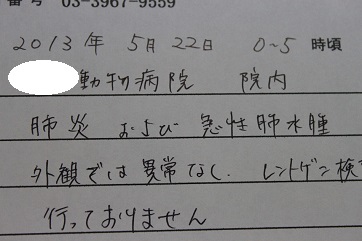 番号 03-3967-9559
2013年 5月 22日 0~5 時頃
動物病院 院内
肺炎 および 急性肺水腫
外観では異常なし. レントゲン検
行っておりません